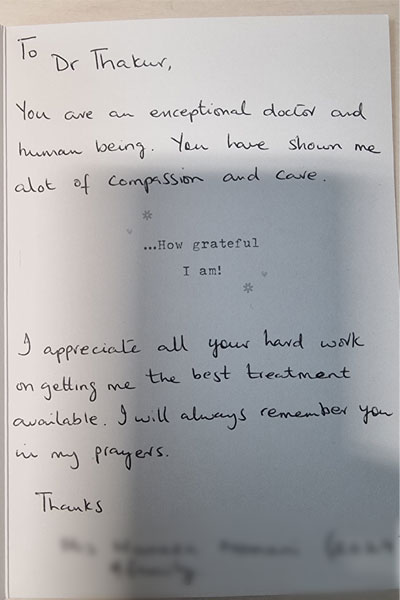 To
Dr Thakur,
You are an exceptional doctor and
human being. You have shown me
alot of compassion and care.
...How grateful
I am!
I appreciate all your hard work
on getting me the best treatment
available. I will always remember you
in my prayers.
Thanks